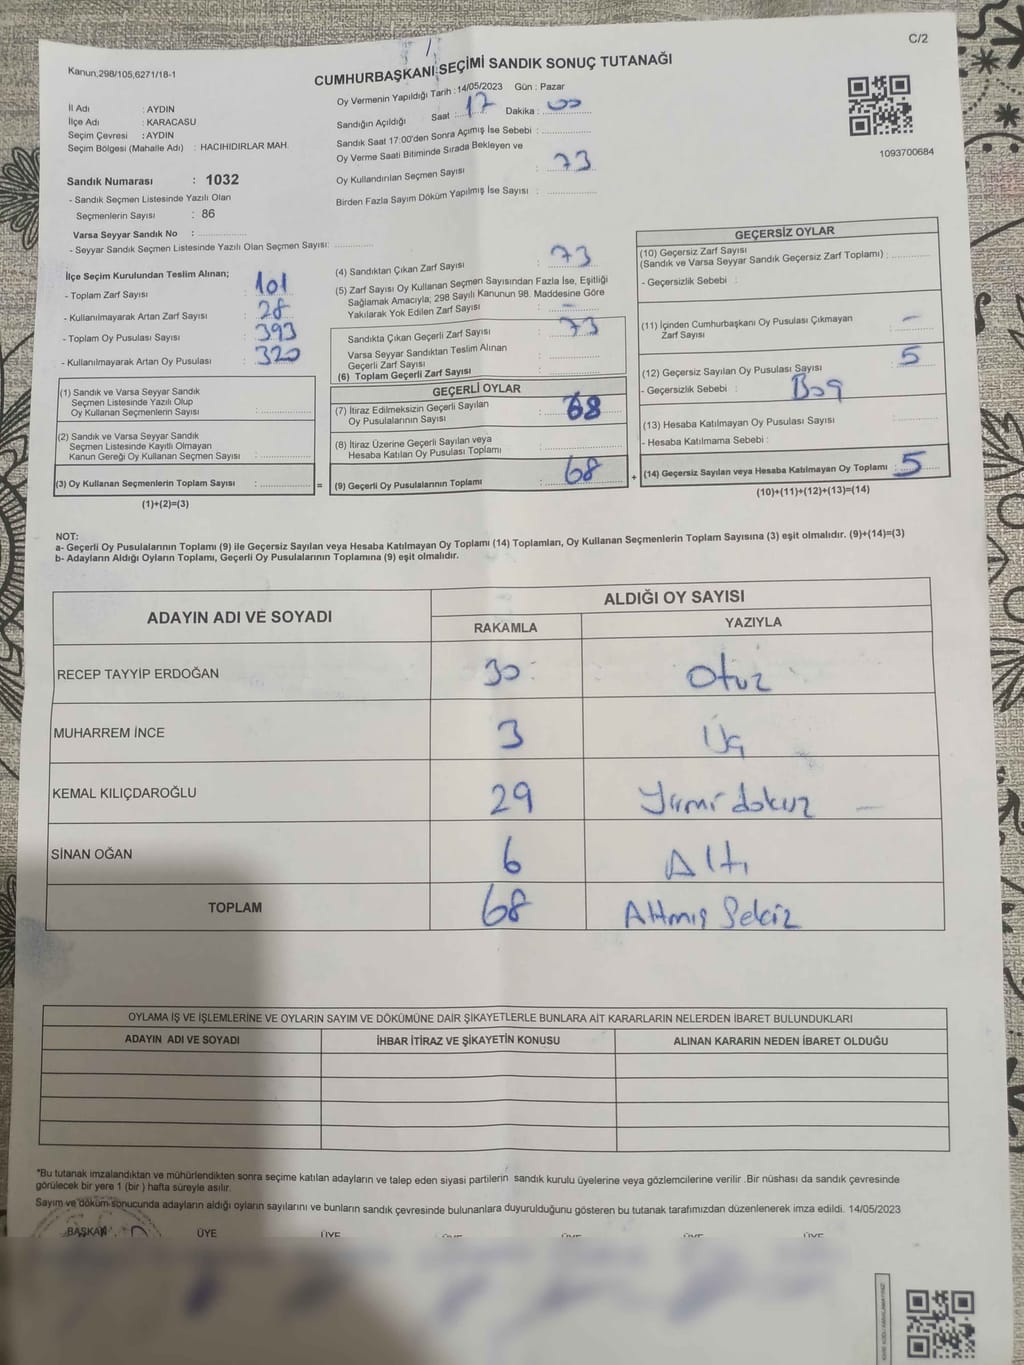 C/2
Kanun,298/105,6271/18-1
CUMHURBAŞKANI SEÇİMİ SANDIK SONUÇ TUTANAĞI
Oy Vermenin Yapıldığı Tarih : 14/05/2023 Gün : Pazar
Sandığın Açıldığı Saat : 17 Dakika : 00
Sandık Saat 17:00'den Sonra Açımış İse Sebebi :
Oy Verme Saati Bitiminde Sırada Bekleyen ve
Oy Kullandırılan Seçmen Sayısı : 73
Birden Fazla Sayım Döküm Yapılmış İse Sayısı :
İl Adı : AYDIN
İlçe Adı : KARACASU
Seçim Çevresi : AYDIN
Seçim Bölgesi (Mahalle Adı) : HACIHIDIRLAR MAH.
1093700684
Sandık Numarası : 1032
- Sandık Seçmen Listesinde Yazılı Olan
Seçmenlerin Sayısı : 86
Varsa Seyyar Sandık No :
- Seyyar Sandık Seçmen Listesinde Yazılı Olan Seçmen Sayısı:
İlçe Seçim Kurulundan Teslim Alınan;
- Toplam Zarf Sayısı : 101
- Kullanılmayarak Artan Zarf Sayısı : 28
- Toplam Oy Pusulası Sayısı : 393
- Kullanılmayarak Artan Oy Pusulası : 320
(1) Sandık ve Varsa Seyyar Sandık
Seçmen Listesinde Yazılı Olup
Oy Kullanan Seçmenlerin Sayısı :
(2) Sandık ve Varsa Seyyar Sandık
Seçmen Listesinde Kayıtlı Olmayan
Kanun Gereği Oy Kullanan Seçmen Sayısı :
(3) Oy Kullanan Seçmenlerin Toplam Sayısı :
(1)+(2)=(3)
(4) Sandıktan Çıkan Zarf Sayısı : 73
(5) Zarf Sayısı Oy Kullanan Seçmen Sayısından Fazla İse, Eşitliği
Sağlamak Amacıyla; 298 Sayılı Kanunun 98. Maddesine Göre
Yakılarak Yok Edilen Zarf Sayısı : –
Sandıkta Çıkan Geçerli Zarf Sayısı : 73
Varsa Seyyar Sandıktan Teslim Alınan
Geçerli Zarf Sayısı :
(6) Toplam Geçerli Zarf Sayısı :
GEÇERLİ OYLAR
(7) İtiraz Edilmeksizin Geçerli Sayılan
Oy Pusulalarının Sayısı : 68
(8) İtiraz Üzerine Geçerli Sayılan veya
Hesaba Katılan Oy Pusulası Toplamı :
= (9) Geçerli Oy Pusulalarının Toplamı : 68
GEÇERSİZ OYLAR
(10) Geçersiz Zarf Sayısı
(Sandık ve Varsa Seyyar Sandık Geçersiz Zarf Toplamı) :
- Geçersizlik Sebebi :
(11) İçinden Cumhurbaşkanı Oy Pusulası Çıkmayan
Zarf Sayısı : –
(12) Geçersiz Sayılan Oy Pusulası Sayısı : 5
- Geçersizlik Sebebi :
(13) Hesaba Katılmayan Oy Pusulası Sayısı :
- Hesaba Katılmama Sebebi :
+ (14) Geçersiz Sayılan veya Hesaba Katılmayan Oy Toplamı : 5
(10)+(11)+(12)+(13)=(14)
NOT:
a- Geçerli Oy Pusulalarının Toplamı (9) ile Geçersiz Sayılan veya Hesaba Katılmayan Oy Toplamı (14) Toplamları, Oy Kullanan Seçmenlerin Toplam Sayısına (3) eşit olmalıdır. (9)+(14)=(3)
b- Adayların Aldığı Oyların Toplamı, Geçerli Oy Pusulalarının Toplamına (9) eşit olmalıdır.
ADAYIN ADI VE SOYADI
ALDIĞI OY SAYISI
RAKAMLA YAZIYLA
RECEP TAYYİP ERDOĞAN 30 Otuz
MUHARREM İNCE 3 Üç
KEMAL KILIÇDAROĞLU 29 Yirmi dokuz
SİNAN OĞAN 6 Altı
TOPLAM 68 Altmış Sekiz
OYLAMA İŞ VE İŞLEMLERİNE VE OYLARIN SAYIM VE DÖKÜMÜNE DAİR ŞİKAYETLERLE BUNLARA AİT KARARLARIN NELERDEN İBARET BULUNDUKLARI
ADAYIN ADI VE SOYADI İHBAR İTİRAZ VE ŞİKAYETİN KONUSU ALINAN KARARIN NEDEN İBARET OLDUĞU
*Bu tutanak imzalandıktan ve mühürlendikten sonra seçime katılan adayların ve talep eden siyasi partilerin sandık kurulu üyelerine veya gözlemcilerine verilir .Bir nüshası da sandık çevresinde
görülecek bir yere 1 (bir ) hafta süreyle asılır.
Sayım ve döküm sonucunda adayların aldığı oyların sayılarını ve bunların sandık çevresinde bulunanlara duyurulduğunu gösteren bu tutanak tarafımızdan düzenlenerek imza edildi. 14/05/2023
BAŞKAN ÜYE ÜYE ÜYE ÜYE ÜYE ÜYE